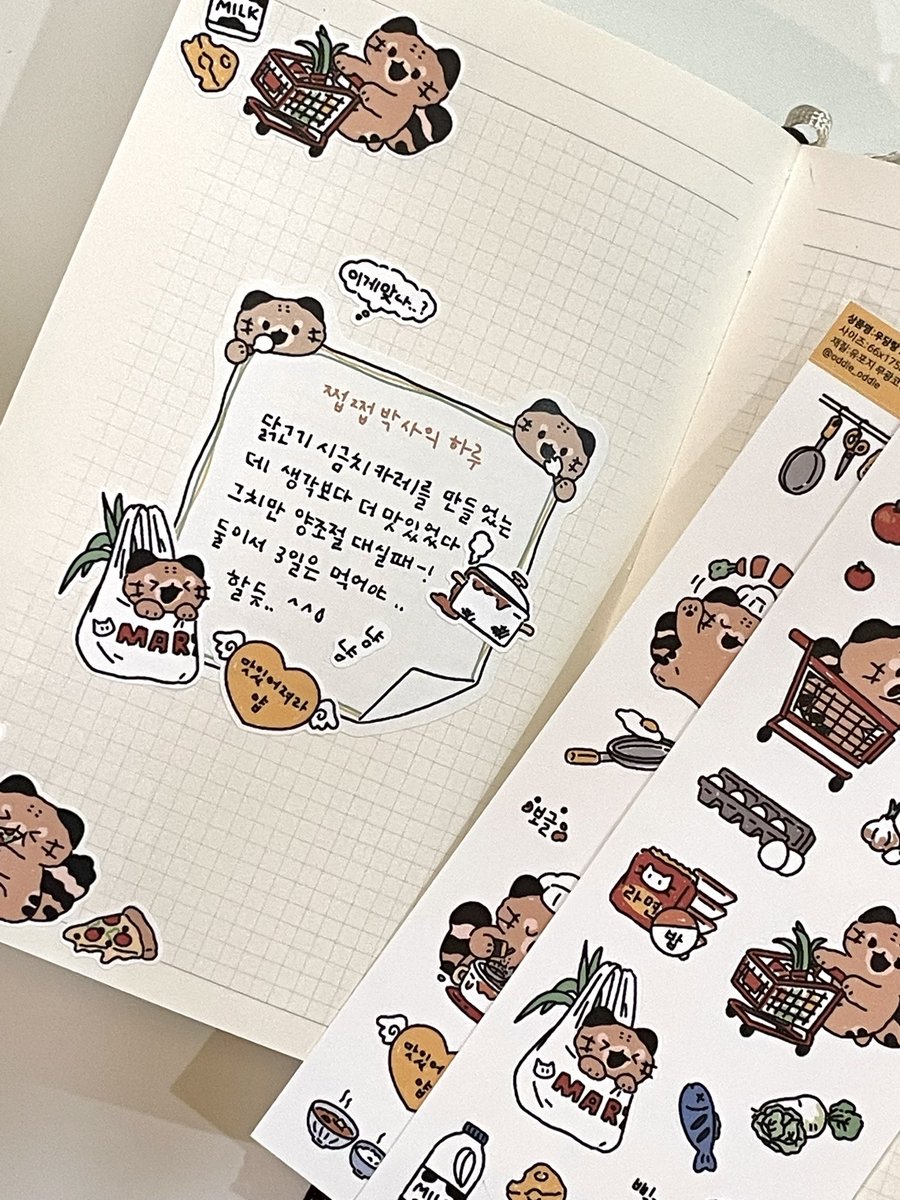 MILK
이게맞나..?
쩝쩝박사의 하루
닭고기 시금치 카레를 만들었는
데 생각보다 더 맛있었다
그치만 양조절 대실패~!
둘이서 3일은 먹어야..
할듯.. ^^;
냠
냠
MAR
맛있어져라
얍
상품명:우당탕
사이즈:66x175
재질:유포지 무광코
@oddle_oddle
보글
라면
밥
MAR
맛있어
얍
MILK